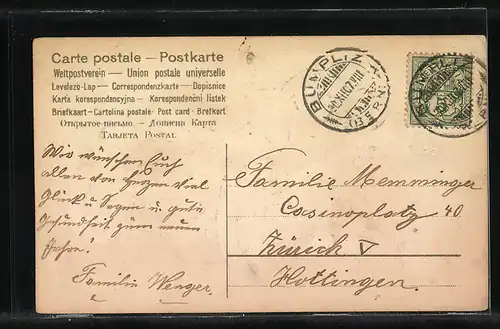 Carte postale — Postkarte
Weltpostverein — Union postale universelle
Levelezö-Lap — Correspondenzkarte — Dopisnice
Karta korespondencyjna — Korespondenční lístek
Briefkaart - Cartolina postale - Post card - Brefkort
Открытое письмо — Дописна Карта
TARJETA POSTAL
Wir wünschen Euch
allen von Herzen viel
Glück u. Segen u. gute
Gesundheit zum neuen
Jahre!
Familie Wenger.
BÜMPLIZ
(BERN)
Familie Memminger
Casinoplatz 40
Zürich V
Hottingen.